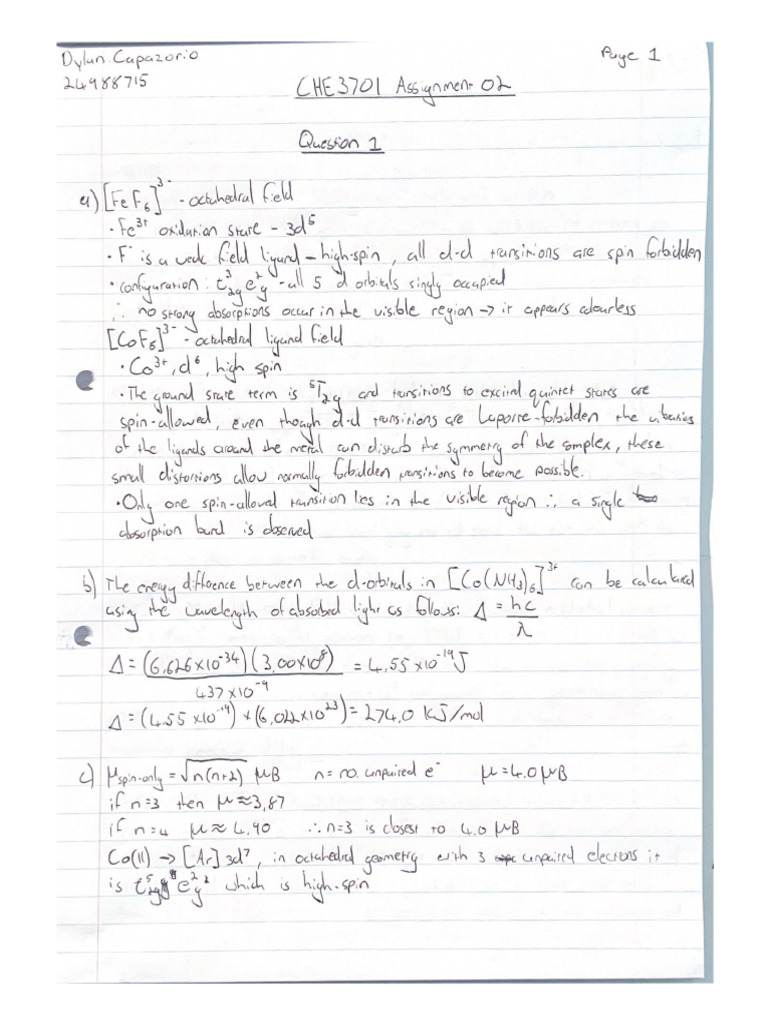 Dylan Capazorio Page 1
24988715
CHE3701 Assignment 02
Question 1
a) [FeF6]3- - octahedral field
· Fe3+ oxidation state - 3d5
· F- is a weak field ligand - high-spin, all d-d transitions are spin forbidden
· configuration: t2g3 eg2 - all 5 d orbitals singly occupied
∴ no strong absorptions occur in the visible region → it appears colourless
[CoF6]3- - octahedral ligand field
· Co3+, d6, high spin
· The ground state term is 5T2g and transitions to excited quintet states are
spin-allowed, even though d-d transitions are Laporte-forbidden the vibrations
of the ligands around the metal can disturb the symmetry of the complex, these
small distortions allow normally forbidden transitions to become possible.
· Only one spin-allowed transition lies in the visible region ∴ a single
absorption band is observed
b) The energy difference between the d-orbitals in [Co(NH3)6]3+ can be calculated
using the wavelength of absorbed light as follows: Δ = hc/λ
Δ = (6,626×10-34)(3,00×108) / 437×10-9 = 4.55×10-19 J
Δ = (4.55×10-19)×(6,022×1023) = 274.0 kJ/mol
c) μspin-only = √n(n+2) μB n = no. unpaired e- μ = 4.0 μB
if n=3 then μ ≈ 3,87
if n=4 μ ≈ 4.90 ∴ n=3 is closest to 4.0 μB
Co(II) → [Ar] 3d7, in octahedral geometry with 3 unpaired electrons it
is t2g5 eg2 which is high-spin